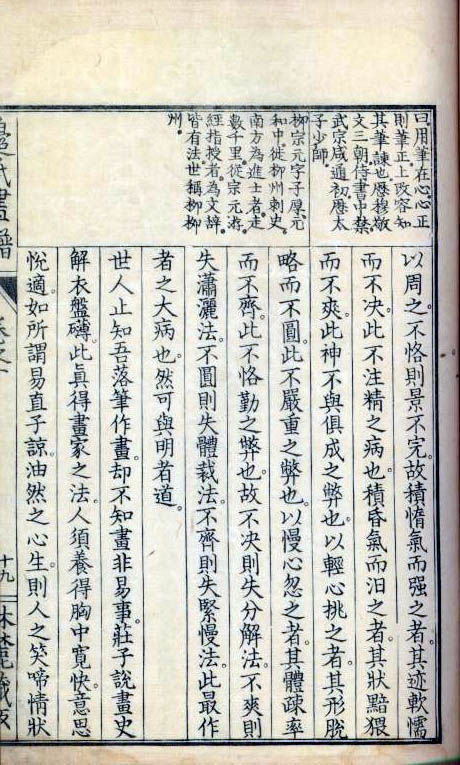 曰用筆在心心正
則筆正上改容知
其筆諫也歷穆敬
文三朝侍書中禁
武宗咸通初歷太
子少師。
柳宗元字子厚元
和中徙柳州刺史
南方為進士者走
數千里從宗元游
經指授者為文辭
皆有法世稱柳柳
州。
以周之。不恪則景不完。故積惰氣而强之者。其迹軟懦
而不決。此不注精之病也。積昏氣而汨之者。其狀黯猥
而不爽。此神不與俱成之弊也。以輕心挑之者。其形脫
略而不圓。此不嚴重之弊也。以慢心忽之者。其體疎率
而不齊。此不恪勤之弊也。故不決則失分解法。不爽則
失瀟灑法。不圓則失體裁法。不齊則失緊慢法。此最作
者之大病也。然可與明者道。
世人止知吾落筆作畫。却不知畫非易事。莊子說畫史
解衣盤礴。此眞得畫家之法。人須養得胸中寬快。意思
悅適。如所謂易直子諒。油然之心生。則人之笑啼情狀
氏畫譜
十九